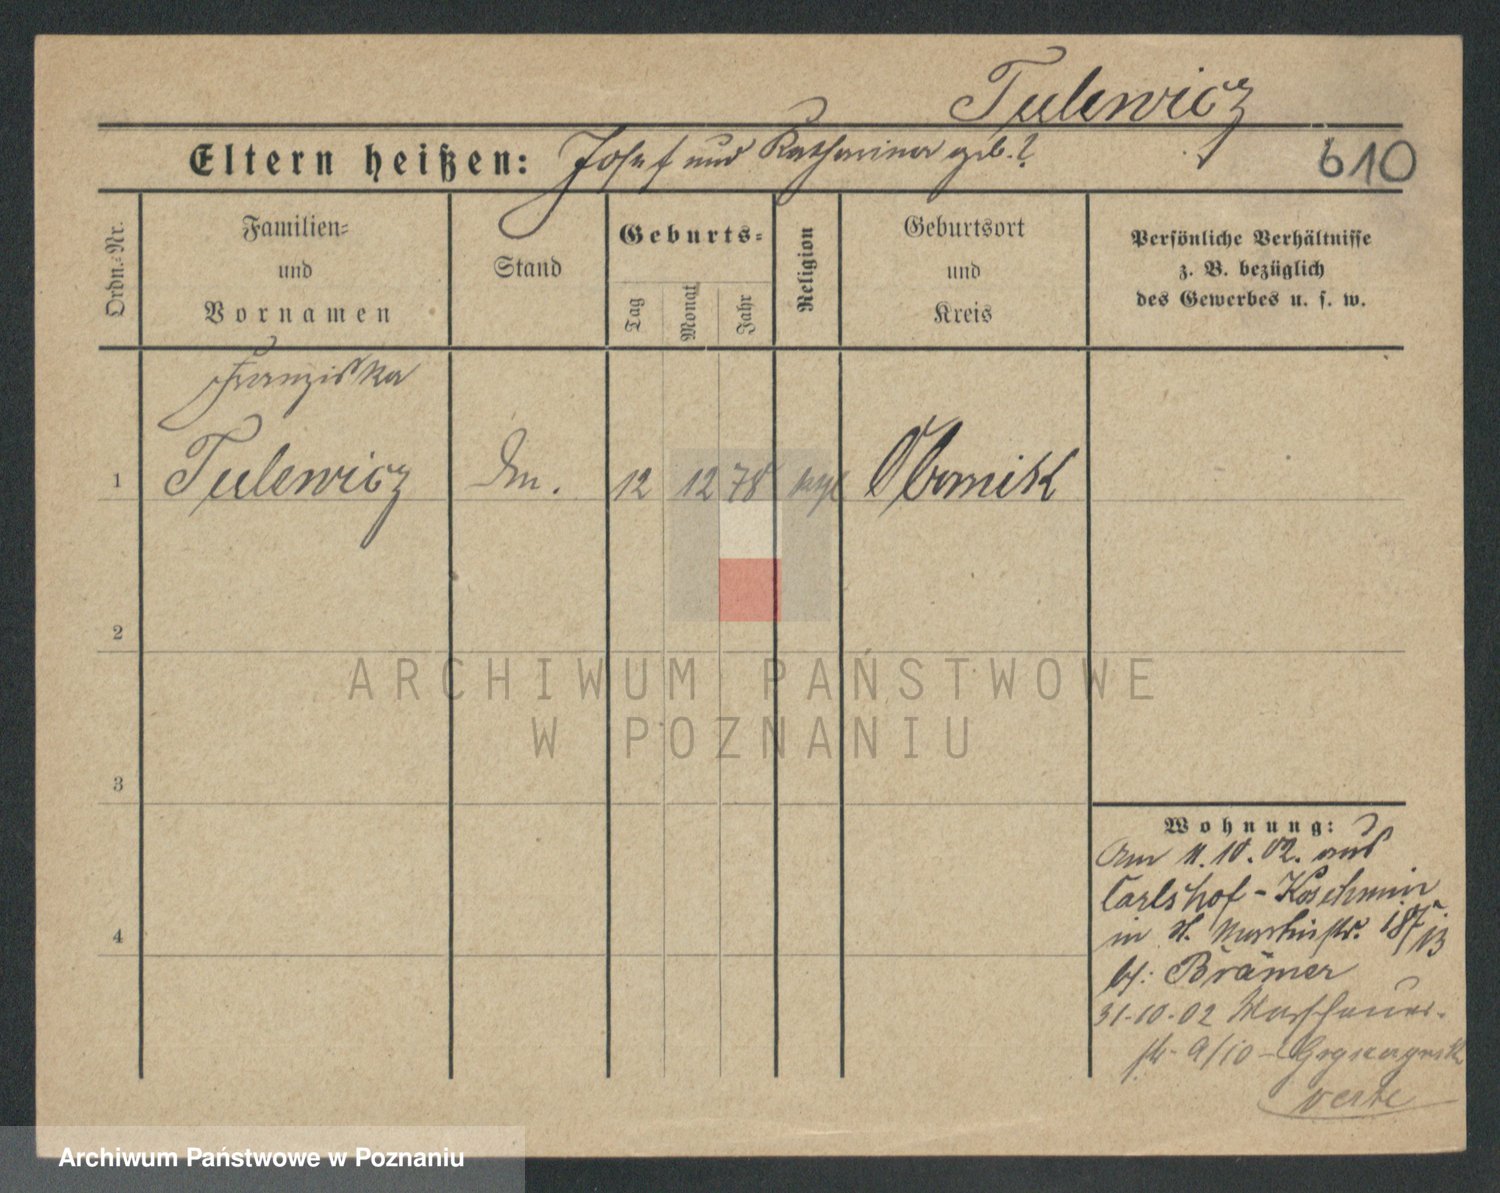 Tulewicz
Eltern heißen: Josef und Katharina geb. ?
610
Ordn.-Nr.
Familien-
und
Vornamen
Stand
Geburts-
Tag
Monat
Jahr
Religion
Geburtsort
und
Kreis
Persönliche Verhältnisse
z. B. bezüglich
des Gewerbes u. s. w.
Franziska
1 Tulewicz 12 12 78 Obornik
2
ARCHIWUM PAŃSTWOWE
W POZNANIU
3
4
Wohnung:
Am 11.10.02. aus
Carlshof - Koschmin
in St. Martinstr.
bei: Brämer
31-10-02
str. 9/10
verte
Archiwum Państwowe w Poznaniu